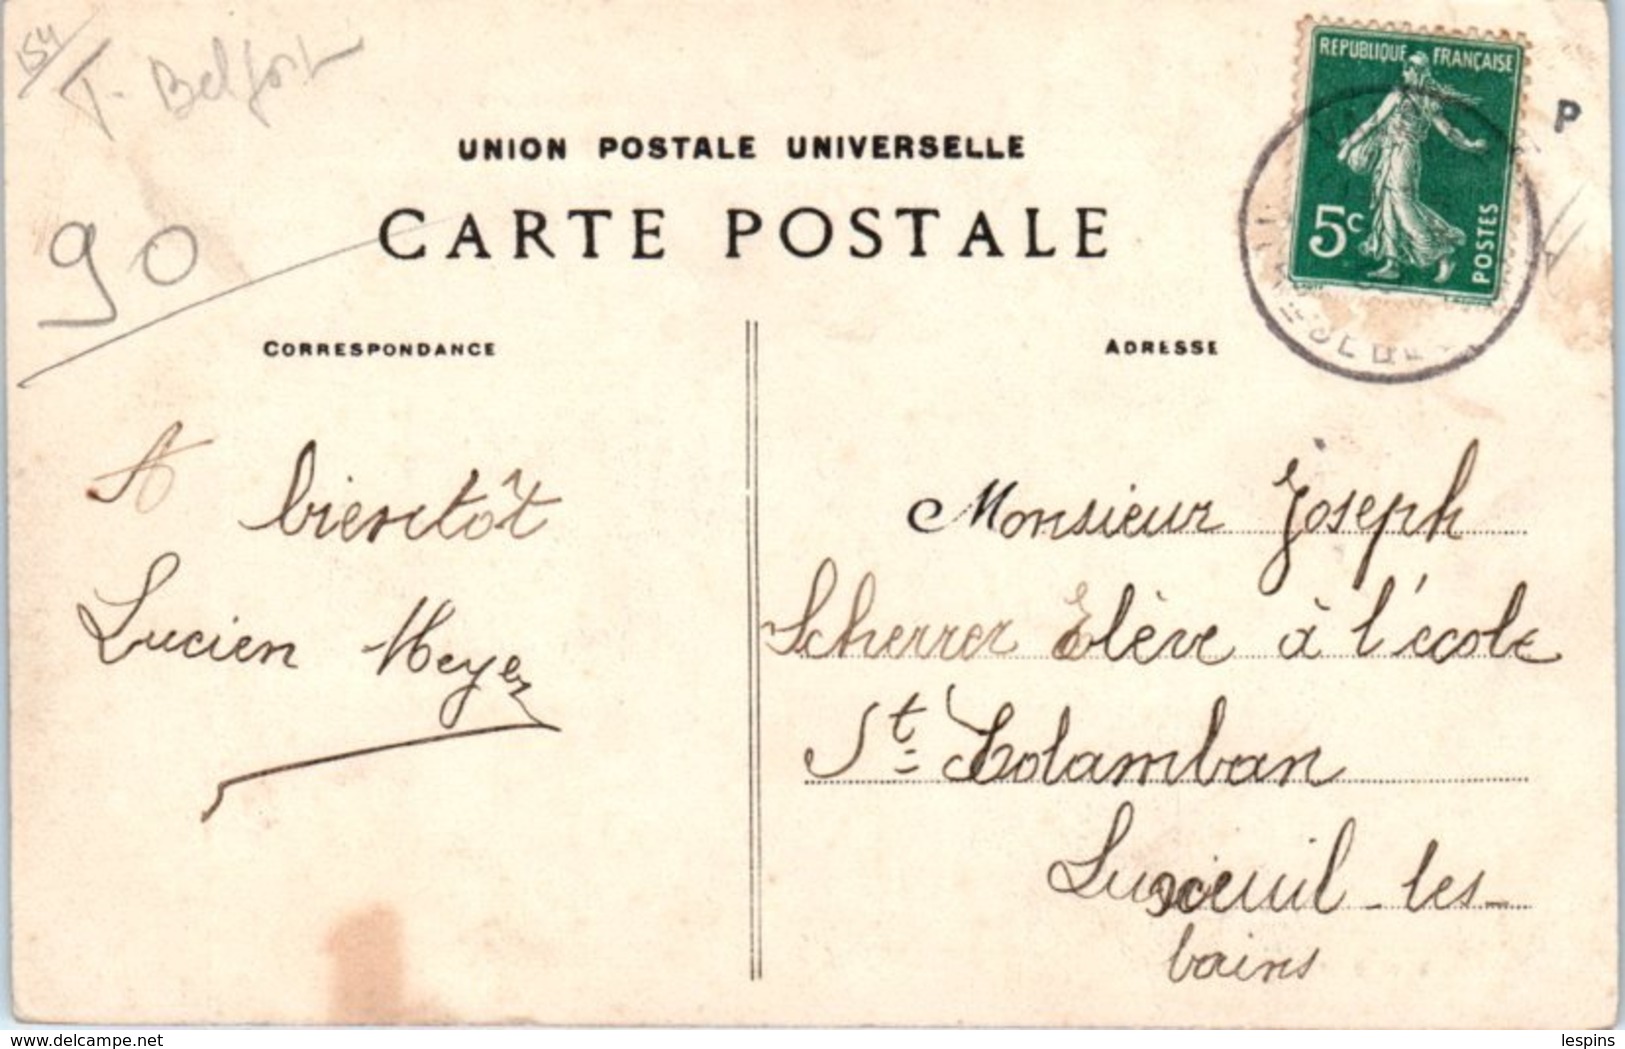 154
T. Belfort
90
UNION POSTALE UNIVERSELLE
CARTE POSTALE
CORRESPONDANCE
ADRESSE
REPUBLIQUE FRANÇAISE
5c
POSTES
P
A
bientôt
Lucien Meyer
Monsieur Joseph
Scherrer Elève à l'école
St Colamban
Luxeuil-les-
bains
www.delcampe.net
lespins